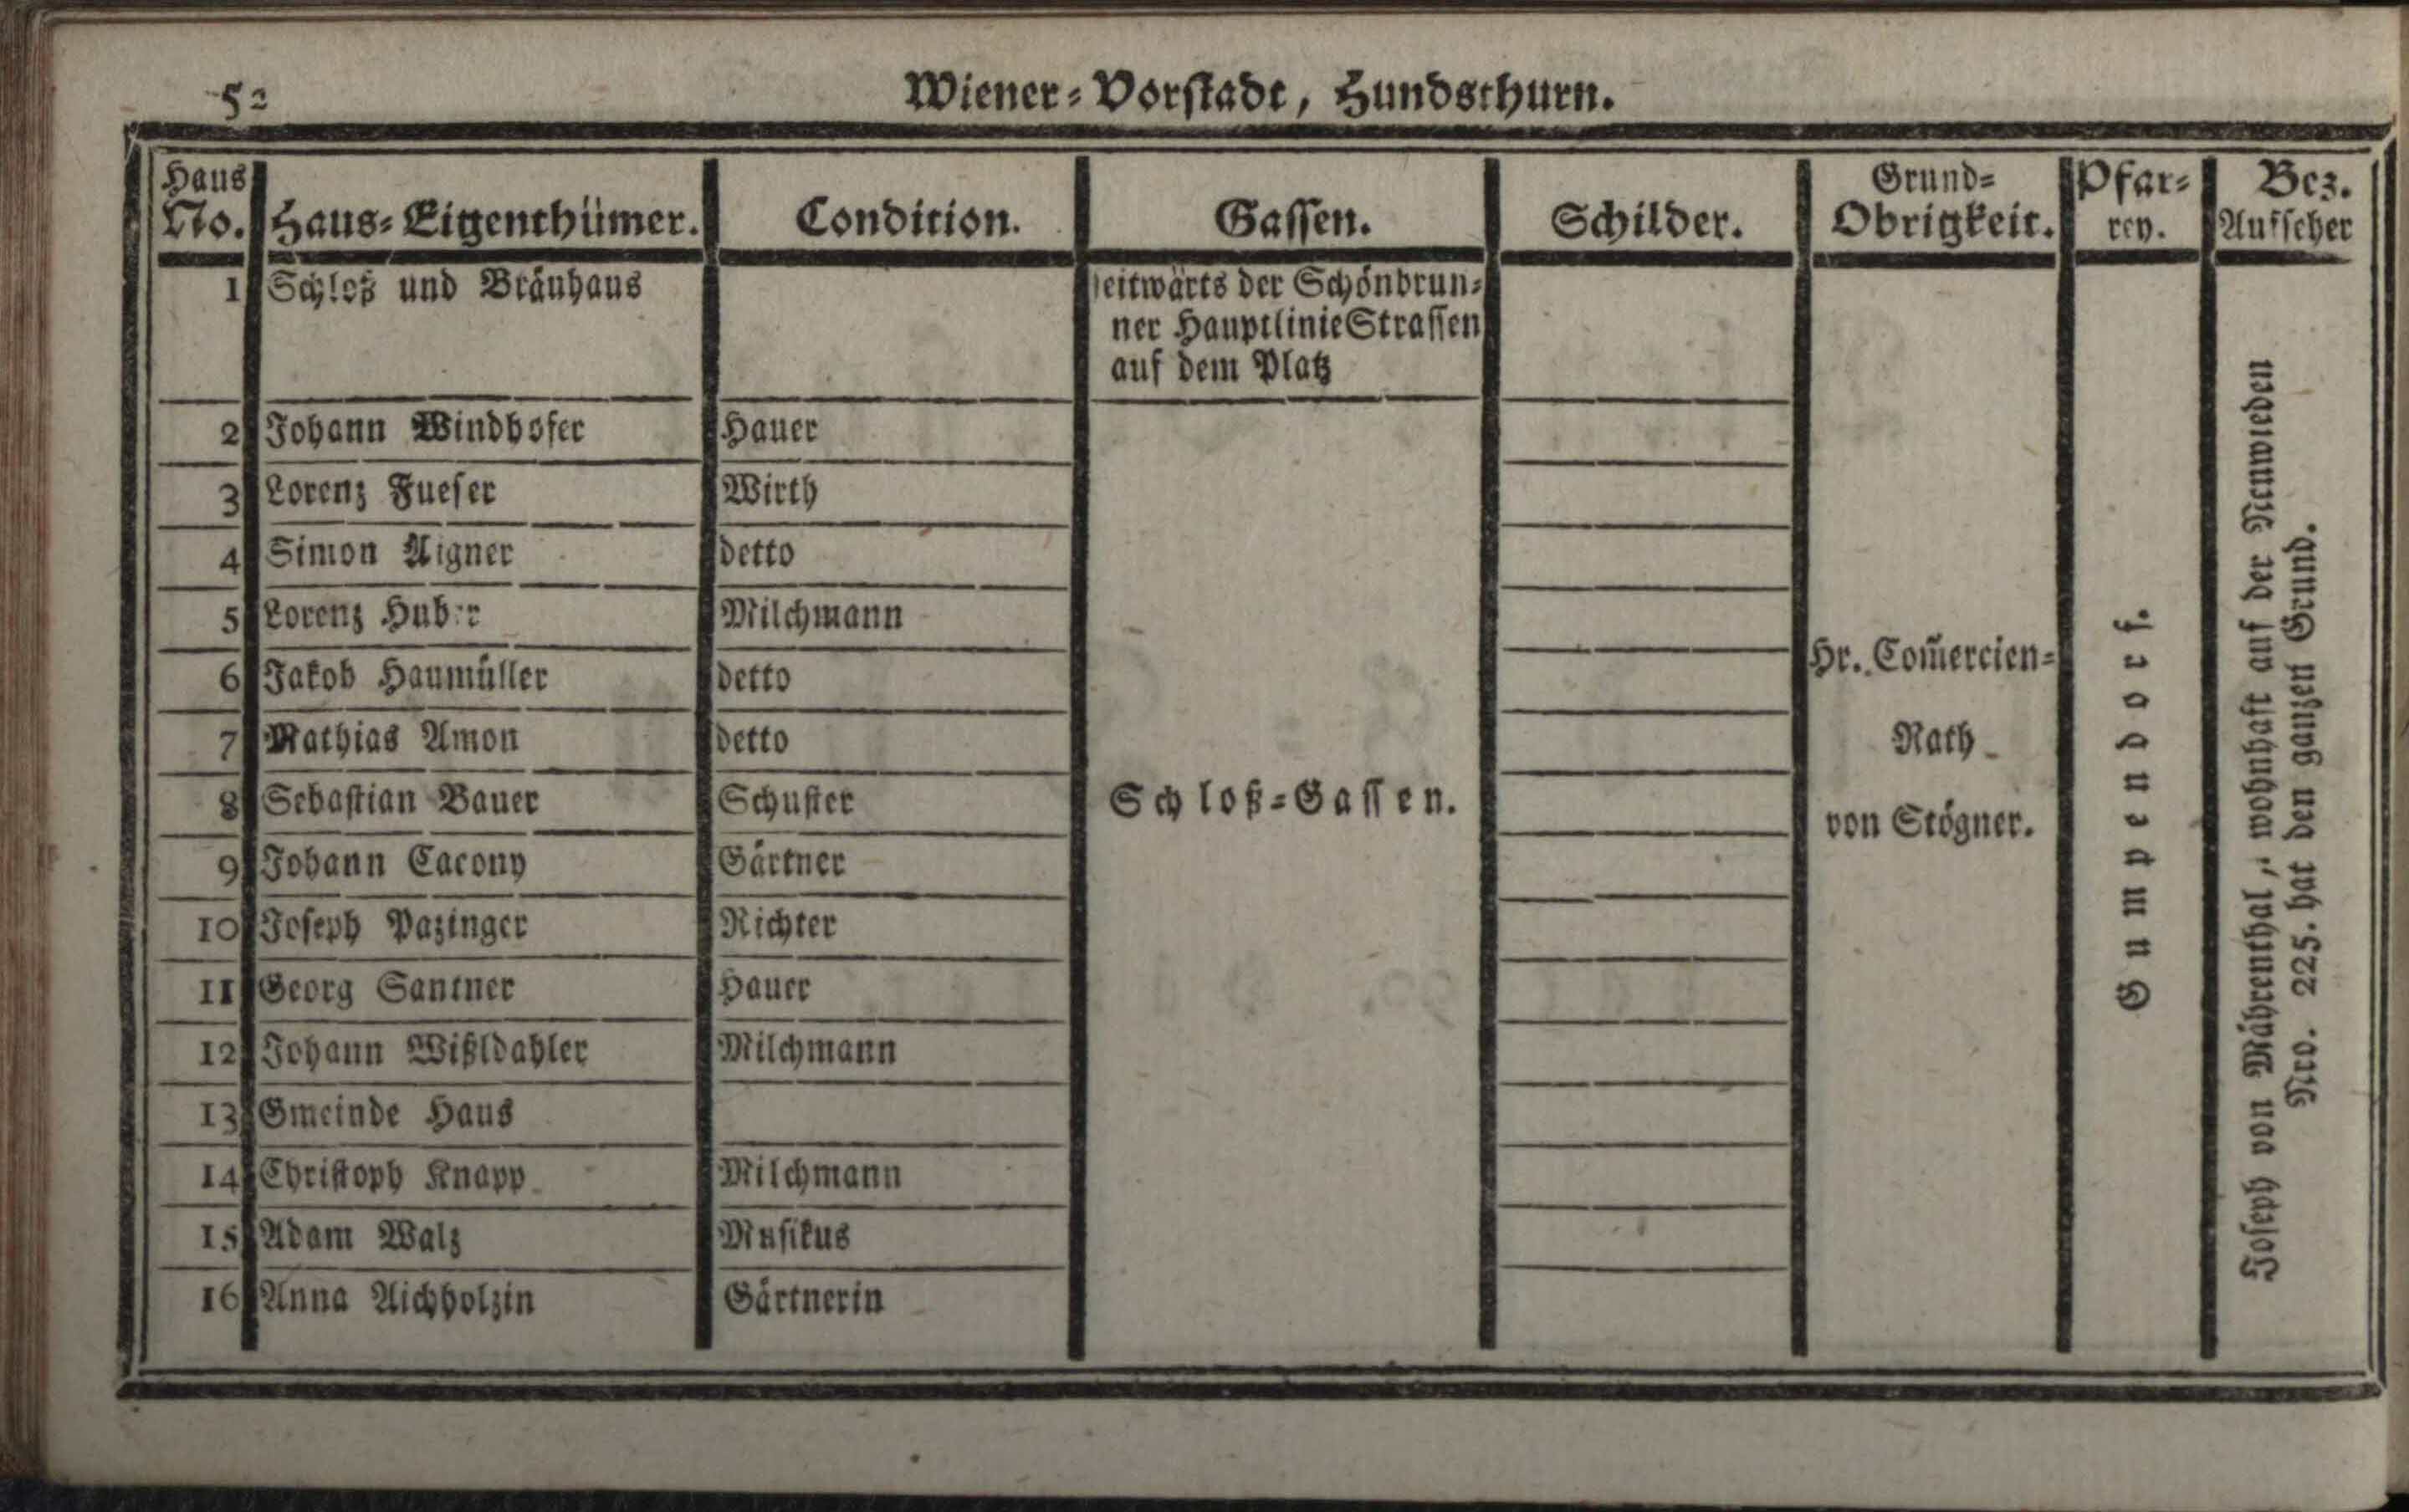 52
Wiener-Vorstadt, Hundsthurn.
Haus No. Haus-Eigenthümer. Condition. Gassen. Schilder. Grund-Obrigkeit. Pfar-rey. Bez. Aufseher
1 Schloß und Bräuhaus seitwärts der Schönbrun-
ner HauptlinieStrassen
auf dem Platz
2 Johann Windhofer Hauer
3 Lorenz Fueser Wirth
4 Simon Aigner detto
5 Lorenz Huber Milchmann
6 Jakob Haumüller detto
7 Mathias Amon detto
8 Sebastian Bauer Schuster
9 Johann Cacony Gärtner
10 Joseph Pazinger Richter
11 Georg Santner Hauer
12 Johann Wißldahler Milchmann
13 Gmeinde Haus
14 Christoph Knapp Milchmann
15 Adam Walz Musikus
16 Anna Aichholzin Gärtnerin
Schloß-Gassen.
Hr. Com̃ercien-
Rath
von Stögner.
Gumpendorf.
Joseph von Mährenthal, wohnhaft auf der Neuwieden
Nro. 225. hat den ganzen Grund.